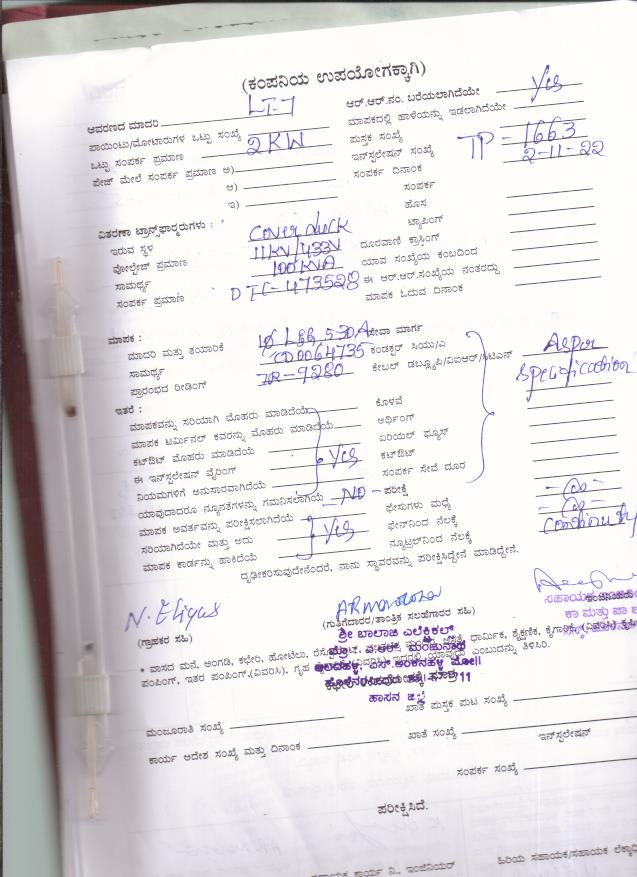 (ಕಂಪನಿಯ ಉಪಯೋಗಕ್ಕಾಗಿ)
ಆವರಣದ ಮಾದರಿ LT-7 ಆರ್.ಆರ್.ನಂ. ಬರೆಯಲಾಗಿದೆಯೇ Yes
ಪಾಯಿಂಟು/ಮೋಟಾರುಗಳ ಒಟ್ಟು ಸಂಖ್ಯೆ ಮಾಪಕದಲ್ಲಿ ಹಾಳೆಯನ್ನು ಇಡಲಾಗಿದೆಯೇ
ಒಟ್ಟು ಸಂಪರ್ಕ ಪ್ರಮಾಣ 2KW ಪುಸ್ತಕ ಸಂಖ್ಯೆ
ಪೇಜ್ ಮೇಲೆ ಸಂಪರ್ಕ ಪ್ರಮಾಣ ಅ) ಇನ್‌ಸ್ಟಲೇಷನ್ ಸಂಖ್ಯೆ TP - 1663
ಆ) ಸಂಪರ್ಕ ದಿನಾಂಕ 2-11-22
ಇ) ಸಂಪರ್ಕ
ಹೊಸ
ವಿತರಣಾ ಟ್ರಾನ್ಸ್‌ಫಾರ್ಮರುಗಳು : ಟ್ಯಾಪಿಂಗ್
ಇರುವ ಸ್ಥಳ ದೂರವಾಣಿ ಕ್ರಾಸಿಂಗ್
ವೋಲ್ಟೇಜ್ ಪ್ರಮಾಣ 11KV/433V ಯಾವ ಸಂಖ್ಯೆಯ ಕಂಬದಿಂದ
ಸಾಮರ್ಥ್ಯ 100KVA ಈ ಆರ್.ಆರ್.ಸಂಖ್ಯೆಯ ನಂತರದ್ದು
ಸಂಪರ್ಕ ಪ್ರಮಾಣ DTC-473528 ಮಾಪಕ ಓದುವ ದಿನಾಂಕ
ಮಾಪಕ :
ಮಾದರಿ ಮತ್ತು ತಯಾರಿಕೆ 5-30A ಸೇವಾ ಮಾರ್ಗ
ಸಾಮರ್ಥ್ಯ CD0064735 ಕಂಡಕ್ಟರ್ ಸಿಯು/ಎ As per
ಪ್ರಾರಂಭದ ರೀಡಿಂಗ್ IR-9280 ಕೇಬಲ್ ಡಬ್ಲ್ಯೂಪಿ/ವಿಐಆರ್/ಸಿಟಿಎನ್ Specification
ಇತರೆ : ಕೊಳವೆ
ಮಾಪಕವನ್ನು ಸರಿಯಾಗಿ ಮೊಹರು ಮಾಡಿದೆಯೆ ಅರ್ಥಿಂಗ್
ಮಾಪಕ ಟರ್ಮಿನಲ್ ಕವರನ್ನು ಮೊಹರು ಮಾಡಿದೆಯೆ ಏರಿಯಲ್ ಫ್ಯೂಸ್
ಕಟ್‌ಔಟ್ ಮೊಹರು ಮಾಡಿದೆಯೆ ಕಟ್‌ಔಟ್
ಈ ಇನ್‌ಸ್ಟಲೇಷನ್ ವೈರಿಂಗ್ Yes ಸಂಪರ್ಕ ಸೇವೆ ದೂರ
ನಿಯಮಗಳಿಗೆ ಅನುಸಾರವಾಗಿದೆಯೆ
ಯಾವುದಾದರೂ ನ್ಯೂನತೆಗಳನ್ನು ಗಮನಿಸಲಾಗಿಯೆ NO ಪರೀಕ್ಷೆ
ಮಾಪಕ ಅವರ್ತವನ್ನು ಪರೀಕ್ಷಿಸಲಾಗಿದೆಯೆ ಫೇಸುಗಳು ಮಧ್ಯೆ
ಸರಿಯಾಗಿದೆಯೇ ಮತ್ತು ಅದು Yes ಫೇಸ್‌ನಿಂದ ನೆಲಕ್ಕೆ
ಮಾಪಕ ಕಾರ್ಡನ್ನು ಹಾಕಿದೆಯೆ ನ್ಯೂಟ್ರಲ್‌ನಿಂದ ನೆಲಕ್ಕೆ Continuity
ದೃಢೀಕರಿಸುವುದೇನೆಂದರೆ, ನಾನು ಸ್ಥಾವರವನ್ನು ಪರೀಕ್ಷಿಸಿದ್ದೇನೆ ಮಾಡಿದ್ದೇನೆ.
(ಗ್ರಾಹಕರ ಸಹಿ) (ಗುತ್ತಿಗೆದಾರರ/ತಾಂತ್ರಿಕ ಸಲಹೆಗಾರರ ಸಹಿ)
ಶ್ರೀ ಬಾಲಾಜಿ ಎಲೆಕ್ಟ್ರಿಕಲ್
ಹಾಸನ ಜಿಲ್ಲೆ
ಮಂಜೂರಾತಿ ಸಂಖ್ಯೆ ಖಾತೆ ಪುಸ್ತಕ ಪುಟ ಸಂಖ್ಯೆ
ಕಾರ್ಯ ಆದೇಶ ಸಂಖ್ಯೆ ಮತ್ತು ದಿನಾಂಕ ಖಾತೆ ಸಂಖ್ಯೆ ಇನ್‌ಸ್ಟಲೇಷನ್
ಸಂಪರ್ಕ ಸಂಖ್ಯೆ
ಪರೀಕ್ಷಿಸಿದೆ.